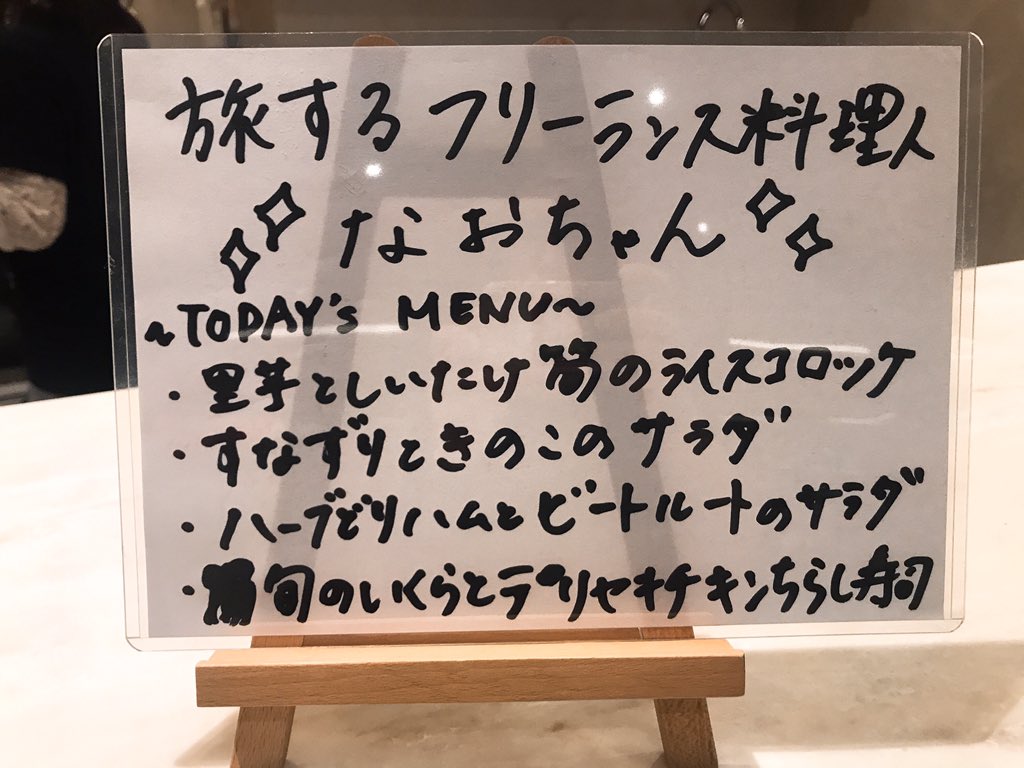 旅するフリーランス料理人
なおちゃん
~TODAY's MENU~
・里芋としいたけ 筍のライスコロッケ
・すなずりときのこのサラダ
・ハーブどりハムとビートルートのサラダ
・旬のいくらとテリヤキチキンちらし寿司